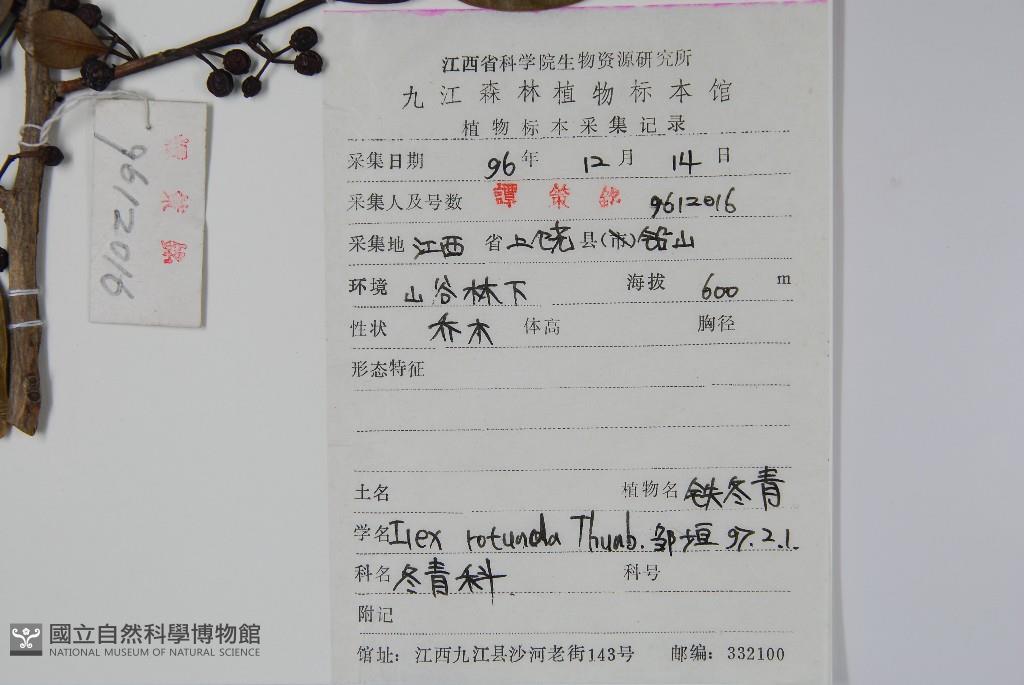 江西省科学院生物资源研究所
九江森林植物标本馆
植物标本采集记录
采集日期 96年 12月 14日
采集人及号数 譚策銘 9612016
采集地 江西 省 上饶 县(市) 铅山
环境 山谷林下 海拔 600 m
性状 乔木 体高 胸径
形态特征
土名 植物名 铁冬青
学名 Ilex rotunda Thunb. 邹垣 97.2.1.
科名 冬青科 科号
附记
馆址: 江西九江县沙河老街143号 邮编: 332100
9612016
譚策銘
國立自然科學博物館
NATIONAL MUSEUM OF NATURAL SCIENCE